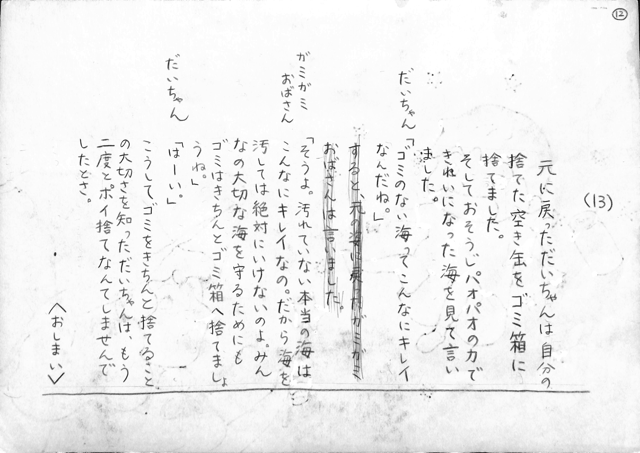 ⑫
(13)
元に戻っただいちゃんは自分の
捨てた空き缶をゴミ箱に
捨てました。
そしておそうじパオパオの力で
きれいになった海を見て言い
ました。
だいちゃん「ゴミのない海ってこんなにキレイ
なんだね。」
すると、元の姿に戻ったガミガミ
おばさんは言いました。
ガミガミ
おばさん
「そうよ。汚れていない本当の海は
こんなにキレイなの。だから海を
汚しては絶対にいけないのよ。みん
なの大切な海を守るためにも
ゴミはきちんとゴミ箱へ捨てましょ
うね。」
だいちゃん
「はーい。」
こうして、ゴミをきちんと捨てること
の大切さを知っただいちゃんは、もう
二度とポイ捨てなんてしませんで
したとさ。
〈おしまい〉